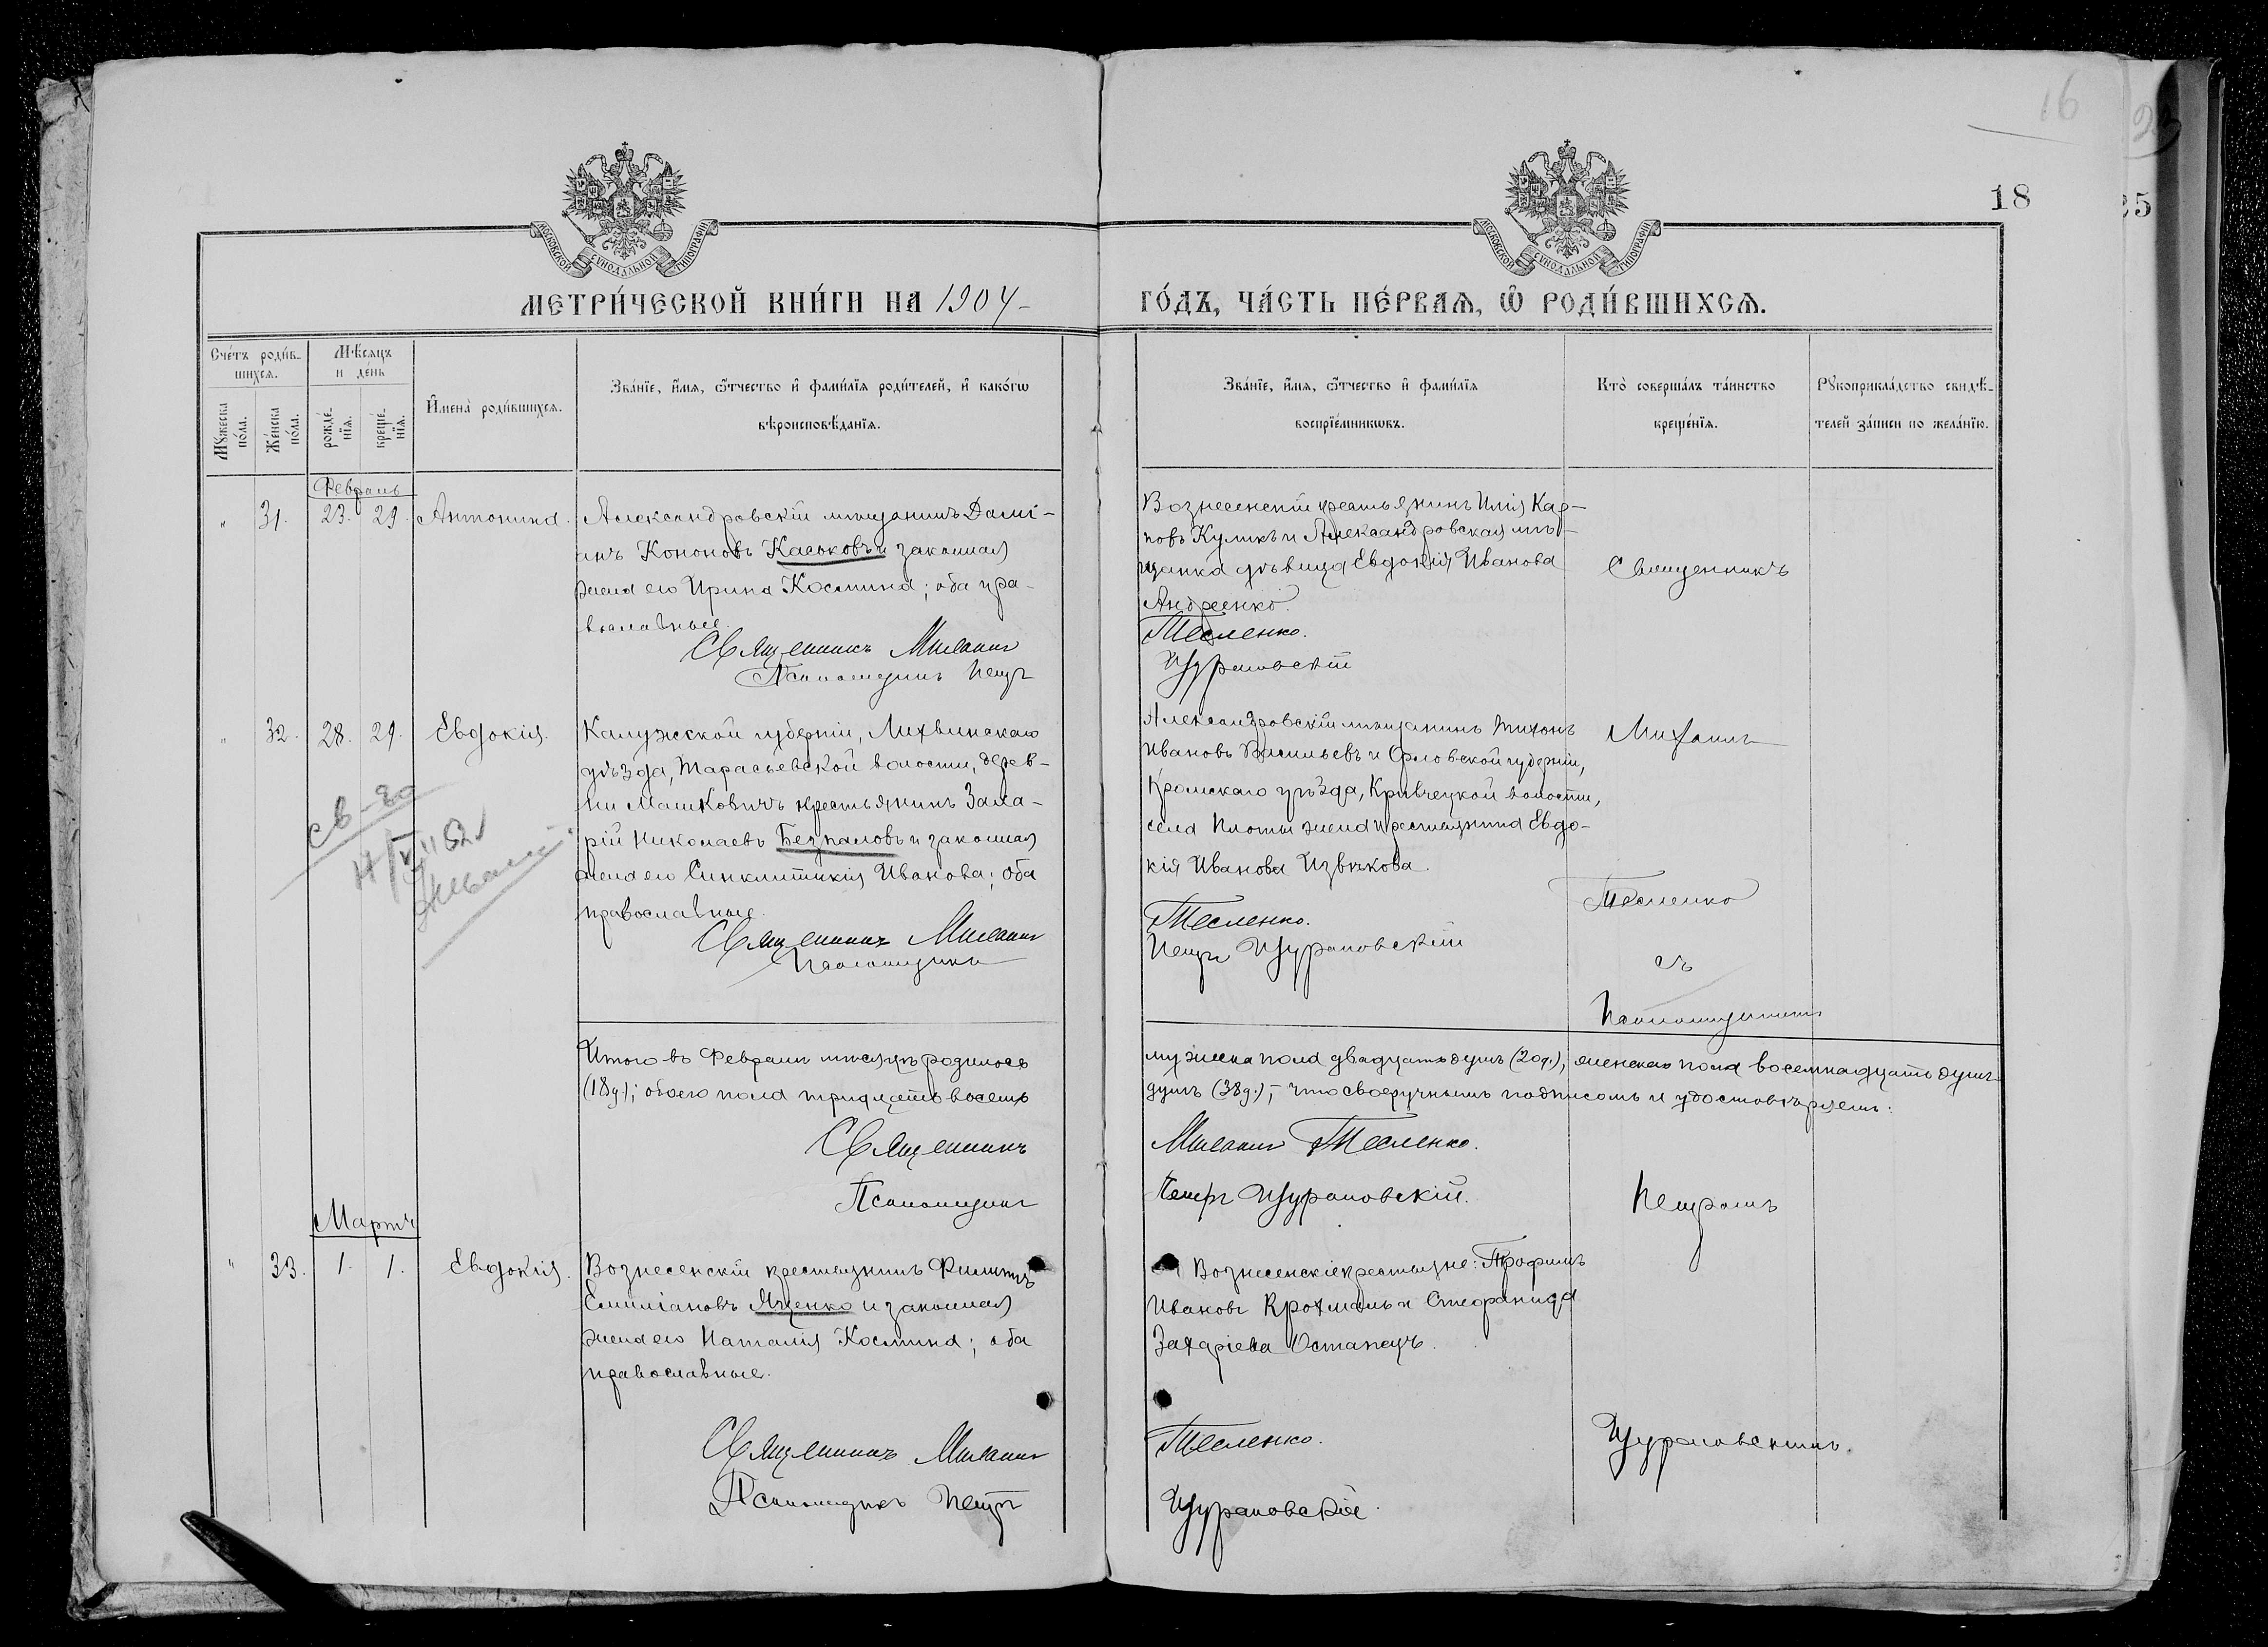 16
18
25
МОСКОВСКОЙ СѴНОДАЛЬНОЙ ТИПОГРАФІИ
МОСКОВСКОЙ СѴНОДАЛЬНОЙ ТИПОГРАФІИ
МЕТРИ́ЧЕСКОЙ КНИ́ГИ НА 1904
ГО́ДЪ, ЧА́СТЬ ПЕ́РВАѦ, Ѡ҆ РОДИ́ВШИХСѦ.
Сче́тъ роди́в-
шихсѧ.
Мѣ́сѧцъ
и де́нь
Мꙋ́жеска
по́ла.
Же́нска
по́ла.
рожде́-
нїѧ.
креще́-
нїѧ.
И҆мена̀ роди́вшихсѧ.
Зва́нїе, и҆́мѧ, ѻ҆́тчество и҆ фами́лїѧ роди́телей, и҆ како́гѡ
вѣроисповѣ́данїѧ.
Зва́нїе, и҆́мѧ, ѻ҆́тчество и҆ фами́лїѧ
воспрїе́мникѡвъ.
Кто̀ соверша́лъ та́инство
креще́нїѧ.
Рꙋкоприкла́дство свидѣ́-
телей за́писи по жела́нїю.
Февраль
" 31. 23. 29. Антонина.
Александровскій мѣщанинъ Дамі-
анъ Кононовъ Каськовъ и законная
жена его Ирина Космина; оба пра-
вославные.
Священникъ Михаилъ
Псаломщикъ Петръ
Вознесенскій крестьянинъ Илія Кар-
повъ Куликъ и Александровская мѣ-
щанка дѣвица Евдокія Ивановa
Андреенко.
Тесленко.
Щуровскій
Священникъ
" 32. 28. 29. Евдокія.
Калужской губерніи, Лихвинскаго
уѣзда, Тарасьевской волости, дерев-
ни Машковичъ крестьянинъ Заха-
рій Николаевъ Безпаловъ и законная
жена его Синклитикія Иванова; оба
православные.
Священникъ Михаилъ
Псаломщикъ
Александровскій мѣщанинъ Тихонъ
Ивановъ Васильевъ и Орловской губерніи,
Кромскаго уѣзда, Кривчецкой волости,
села Плоты жена крестьянина Евдо-
кія Иванова Извѣкова.
Тесленко.
Петръ Щуровскій
Михаилъ
Тесленко
съ
Псаломщикомъ
св-во
Итого въ Февралѣ мѣсяцѣ родилось
(18 д.); обоего пола тридцать восемь
Священникъ
Псаломщикъ
мужеска пола двадцать душъ (20 д.), женска пола восемнадцать душъ
душъ (38 д.), что своеручнымъ подписомъ и удостовѣряемъ:
Михаилъ Тесленко.
Петръ Щуровскій.
Петромъ
Мартъ
" 33. 1. 1. Евдокія.
Вознесенскій крестьянинъ Филиппъ
Емиліановъ Яценко и законная
жена его Наталія Космина; оба
православные.
Священникъ Михаилъ
Псаломщикъ Петръ
Вознесенскіе крестьяне: Трофимъ
Ивановъ Крохмаль и Стефанида
Захаріева Остапецъ.
Тесленко.
Щуровскій.
Щуровскимъ.